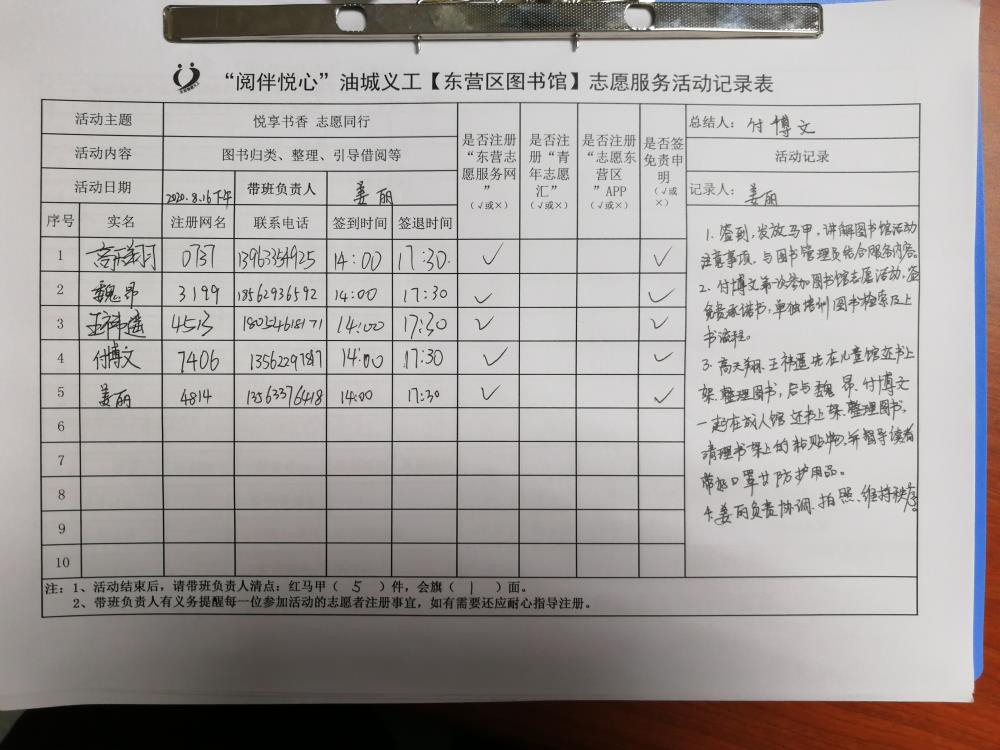 “阅伴悦心”油城义工【东营区图书馆】志愿服务活动记录表
活动主题 悦享书香 志愿同行
活动内容 图书归类、整理、引导借阅等
活动日期 2020.8.16下午 带班负责人 姜丽
序号 实名 注册网名 联系电话 签到时间 签退时间 是否注册“东营志愿服务网”（√或×） 是否注册“青年志愿汇”（√或×） 是否注册“志愿东营区”APP（√或×） 是否签免责申明（√或×）
1 高天翔 0737 14:00 17:30 √ √
2 魏昂 3199 18562936592 14:00 17:30 √ √
3 王祎遥 4513 18054618171 14:00 17:30 √ √
4 付博文 7406 14:00 17:30 √ √
5 姜丽 4814 13563376418 14:00 17:30 √ √
6
7
8
9
10
总结人：付博文
活动记录
记录人：姜丽
1. 签到，发放马甲，讲解图书馆活动
注意事项，与图书管理员结合服务内容。
2. 付博文第一次参加图书馆志愿活动，签
免责承诺书，单独培训图书检索及上
书流程。
3. 高天翔、王祎遥先在儿童馆还书上
架、整理图书，后与魏昂、付博文
一起在成人馆还书上架、整理图书，
清理书架上的粘贴物，并督导读者
带好口罩等防护用品。
4. 姜丽负责协调、拍照、维持秩序
注：1、活动结束后，请带班负责人清点：红马甲（ 5 ）件，会旗（ 1 ）面。
2、带班负责人有义务提醒每一位参加活动的志愿者注册事宜，如有需要还应耐心指导注册。